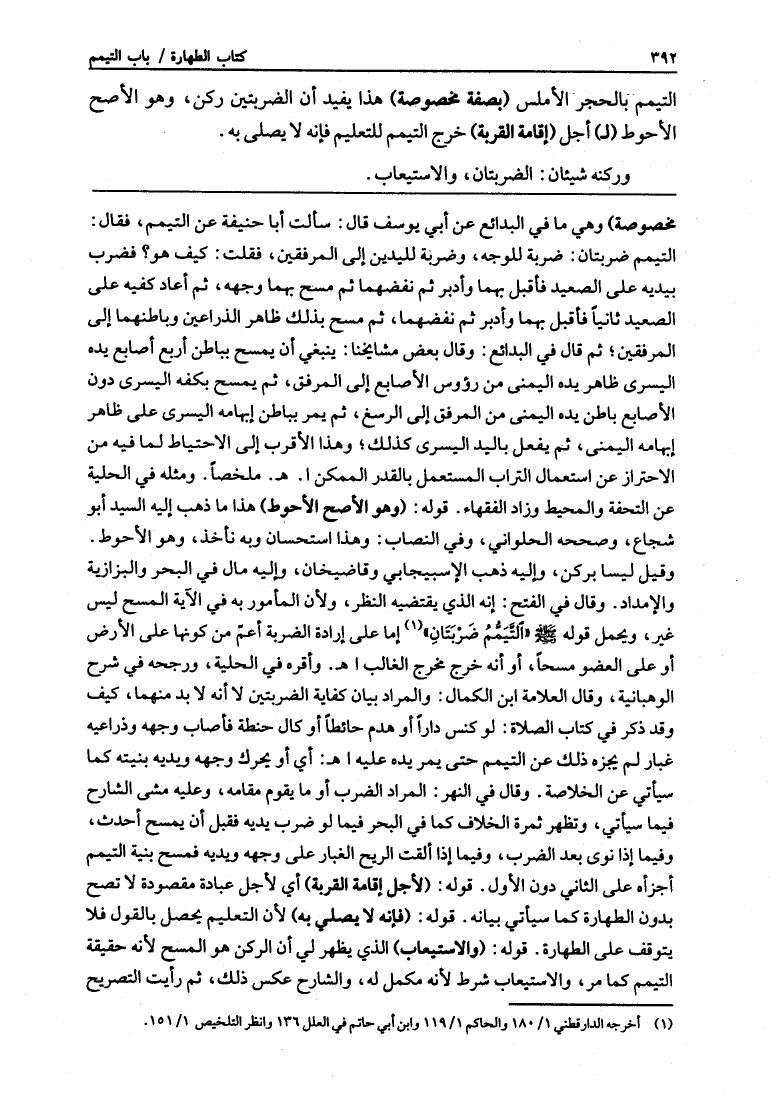 ٣٩٢ كتاب الطهارة / باب التيمم
التيمم بالحجر الأملس (بصفة مخصوصة) هذا يفيد أن الضربتين ركن، وهو الأصح
الأحوط (لـ) أجل (إقامة القربة) خرج التيمم للتعليم فإنه لا يصلى به.
وركنه شيئان: الضربتان، والاستيعاب.
مخصوصة) وهي ما في البدائع عن أبي يوسف قال: سألت أبا حنيفة عن التيمم، فقال:
التيمم ضربتان: ضربة للوجه، وضربة لليدين إلى المرفقين، فقلت: كيف هو؟ فضرب
بيديه على الصعيد فأقبل بهما وأدبر ثم نفضهما ثم مسح بهما وجهه، ثم أعاد كفيه على
الصعيد ثانياً فأقبل بهما وأدبر ثم نفضهما، ثم مسح بذلك ظاهر الذراعين وباطنهما إلى
المرفقين؛ ثم قال في البدائع: وقال بعض مشايخنا: ينبغي أن يمسح بباطن أربع أصابع يده
اليسرى ظاهر يده اليمنى من رؤوس الأصابع إلى المرفق، ثم يمسح بكفه اليسرى دون
الأصابع باطن يده اليمنى من المرفق إلى الرسغ، ثم يمر بباطن إبهامه اليسرى على ظاهر
إبهامه اليمنى، ثم يفعل باليد اليسرى كذلك؛ وهذا الأقرب إلى الاحتياط لما فيه من
الاحتراز عن استعمال التراب المستعمل بالقدر الممكن ا. هـ. ملخصاً. ومثله في الحلية
عن التحفة والمحيط وزاد الفقهاء. قوله: (وهو الأصح الأحوط) هذا ما ذهب إليه السيد أبو
شجاع، وصححه الحلواني، وفي النصاب: وهذا استحسان وبه نأخذ، وهو الأحوط.
وقيل ليسا بركن، وإليه ذهب الإسبيجابي وقاضيخان، وإليه مال في البحر والبزازية
والإمداد. وقال في الفتح: إنه الذي يقتضيه النظر، ولأن المأمور به في الآية المسح ليس
غير، ويحمل قوله ﷺ «التَّيَمُّمُ ضَرْبَتَانِ»(١) إما على إرادة الضربة أعمّ من كونها على الأرض
أو على العضو مسحاً، أو أنه خرج مخرج الغالب ا هـ. وأقره في الحلية، ورجحه في شرح
الوهبانية، وقال العلامة ابن الكمال: والمراد بيان كفاية الضربتين لا أنه لا بد منهما، كيف
وقد ذكر في كتاب الصلاة: لو كنس داراً أو هدم حائطاً أو كال حنطة فأصاب وجهه وذراعيه
غبار لم يجزه ذلك عن التيمم حتى يمر يده عليه ا هـ: أي أو يحرك وجهه ويديه بنيته كما
سيأتي عن الخلاصة. وقال في النهر: المراد الضرب أو ما يقوم مقامه، وعليه مشى الشارح
فيما سيأتي، وتظهر ثمرة الخلاف كما في البحر فيما لو ضرب يديه فقبل أن يمسح أحدث،
وفيما إذا نوى بعد الضرب، وفيما إذا ألقت الريح الغبار على وجهه ويديه فمسح بنية التيمم
أجزأه على الثاني دون الأول. قوله: (لأجل إقامة القربة) أي لأجل عبادة مقصودة لا تصح
بدون الطهارة كما سيأتي بيانه. قوله: (فإنه لا يصلي به) لأن التعليم يحصل بالقول فلا
يتوقف على الطهارة. قوله: (والاستيعاب) الذي يظهر لي أن الركن هو المسح لأنه حقيقة
التيمم كما مر، والاستيعاب شرط لأنه مكمل له، والشارح عكس ذلك، ثم رأيت التصريح
(١) أخرجه الدارقطني ١/ ١٨٠ والحاكم ١/ ١١٩ وابن أبي حاتم في العلل ١٣٦ وانظر التلخيص ١/ ١٥١.